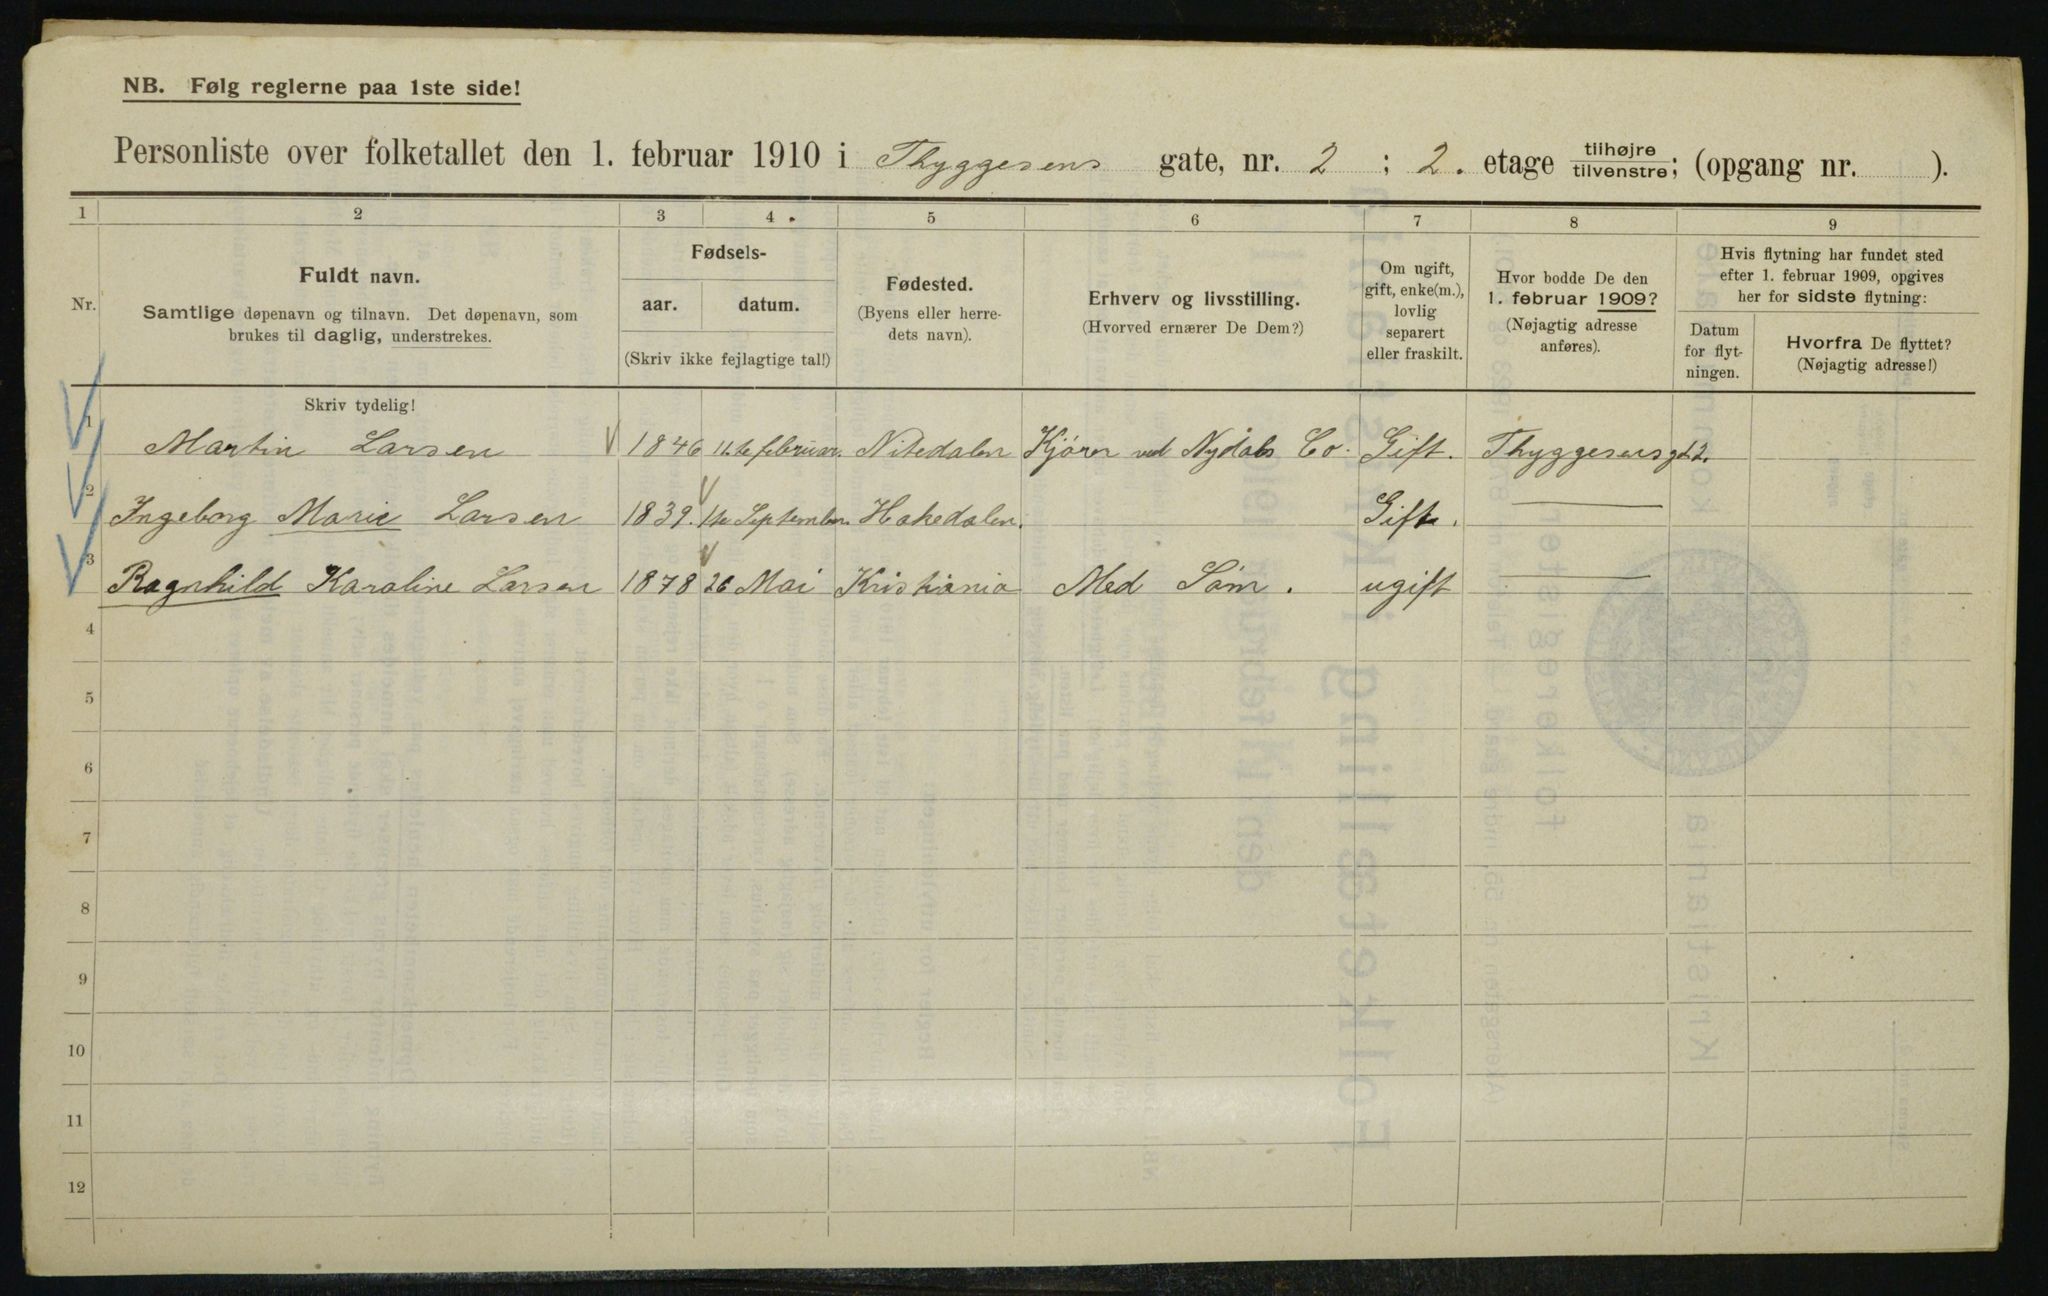 NB. Følg reglerne paa 1ste side!
Personliste over folketallet den 1. februar 1910 i Thyggesens gate, nr. 2 ; 2. etage tilhøjre tilvenstre; (opgang nr. ).
1 2 3 4 5 6 7 8 9
Nr.
Fuldt navn.
Samtlige døpenavn og tilnavn. Det døpenavn, som
brukes til daglig, understrekes.
Fødsels-
aar. datum.
(Skriv ikke fejlagtige tal!)
Fødested.
(Byens eller herre-
dets navn).
Erhverv og livsstilling.
(Hvorved ernærer De Dem?)
Om ugift,
gift, enke(m.),
lovlig
separert
eller fraskilt.
Hvor bodde De den
1. februar 1909?
(Nøjagtig adresse
anføres).
Hvis flytning har fundet sted
efter 1. februar 1909, opgives
her for sidste flytning:
Datum
for flyt-
ningen.
Hvorfra De flyttet?
(Nøjagtig adresse!)
Skriv tydelig!
1 Martin Larsen 1846 11.te februar. Nitedalen Kjører ved Nydals Co. Gift. Thyggesensgt. 2.
2 Ingeborg Marie Larsen 1839. 1te September. Hakedalen. Gift.
3 Ragnhild Karoline Larsen 1878 26 Mai Kristiania Med Søm. ugift
4
5
6
7
8
9
10
11
12